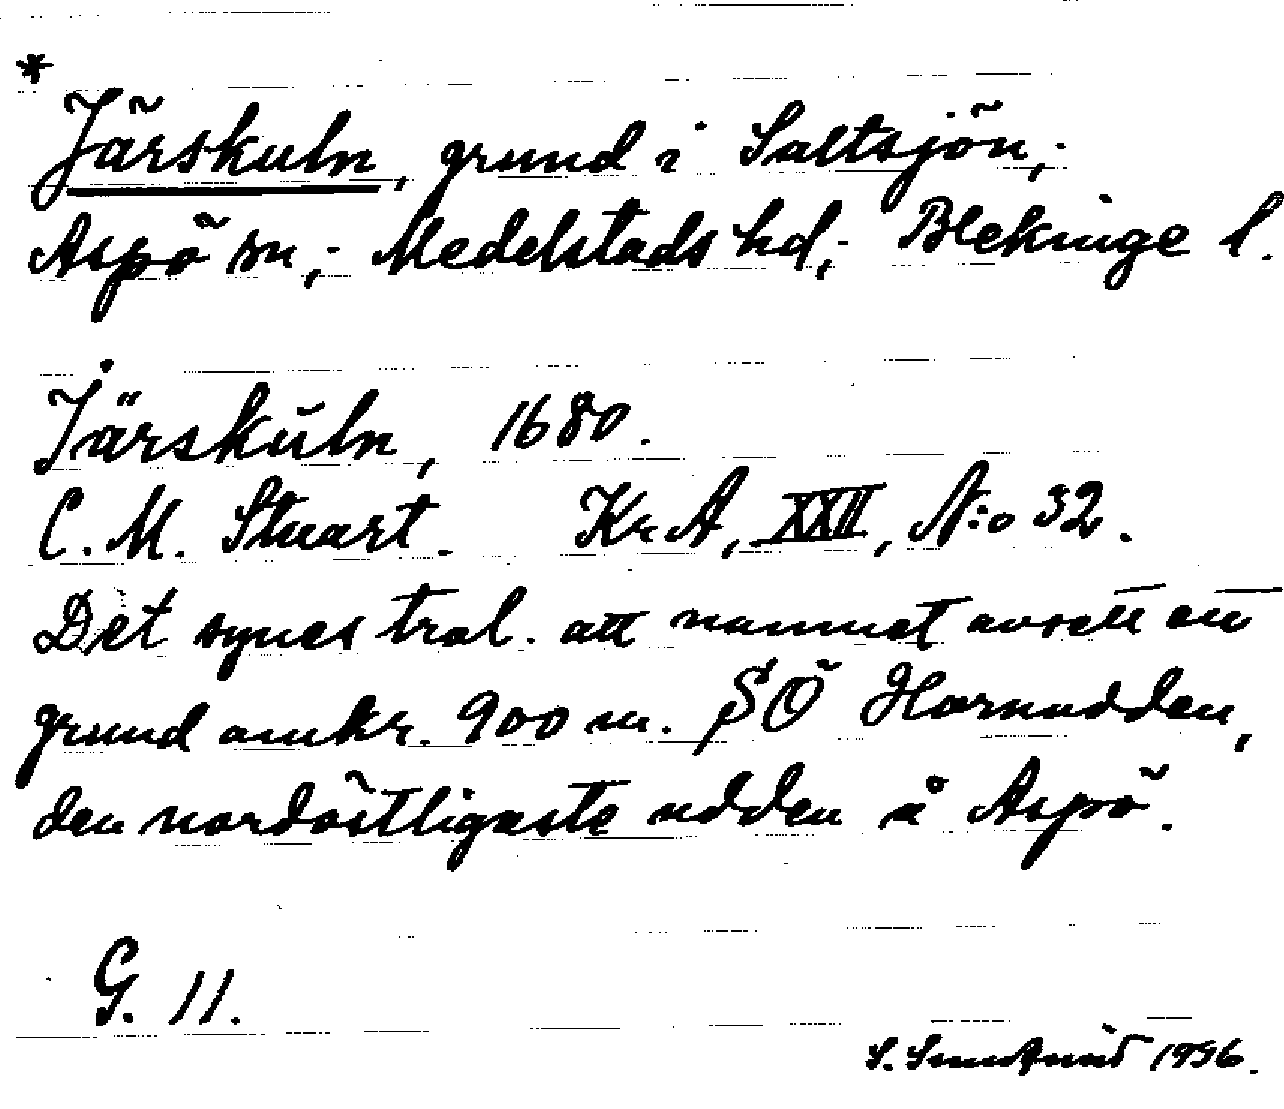 *
Järskuln, grund i Saltsjön,
Aspö sn, Medelstads hd, Blekinge l.
Järskŭln, 1680.
C. M. Stuart. KrA, XXII, N:o 32.
Det synes trol. att namnet avsett en
grund omkr. 900 m. SÖ Hornudden,
den nordöstligaste udden å Aspö.
G. 11.
S. 1956.